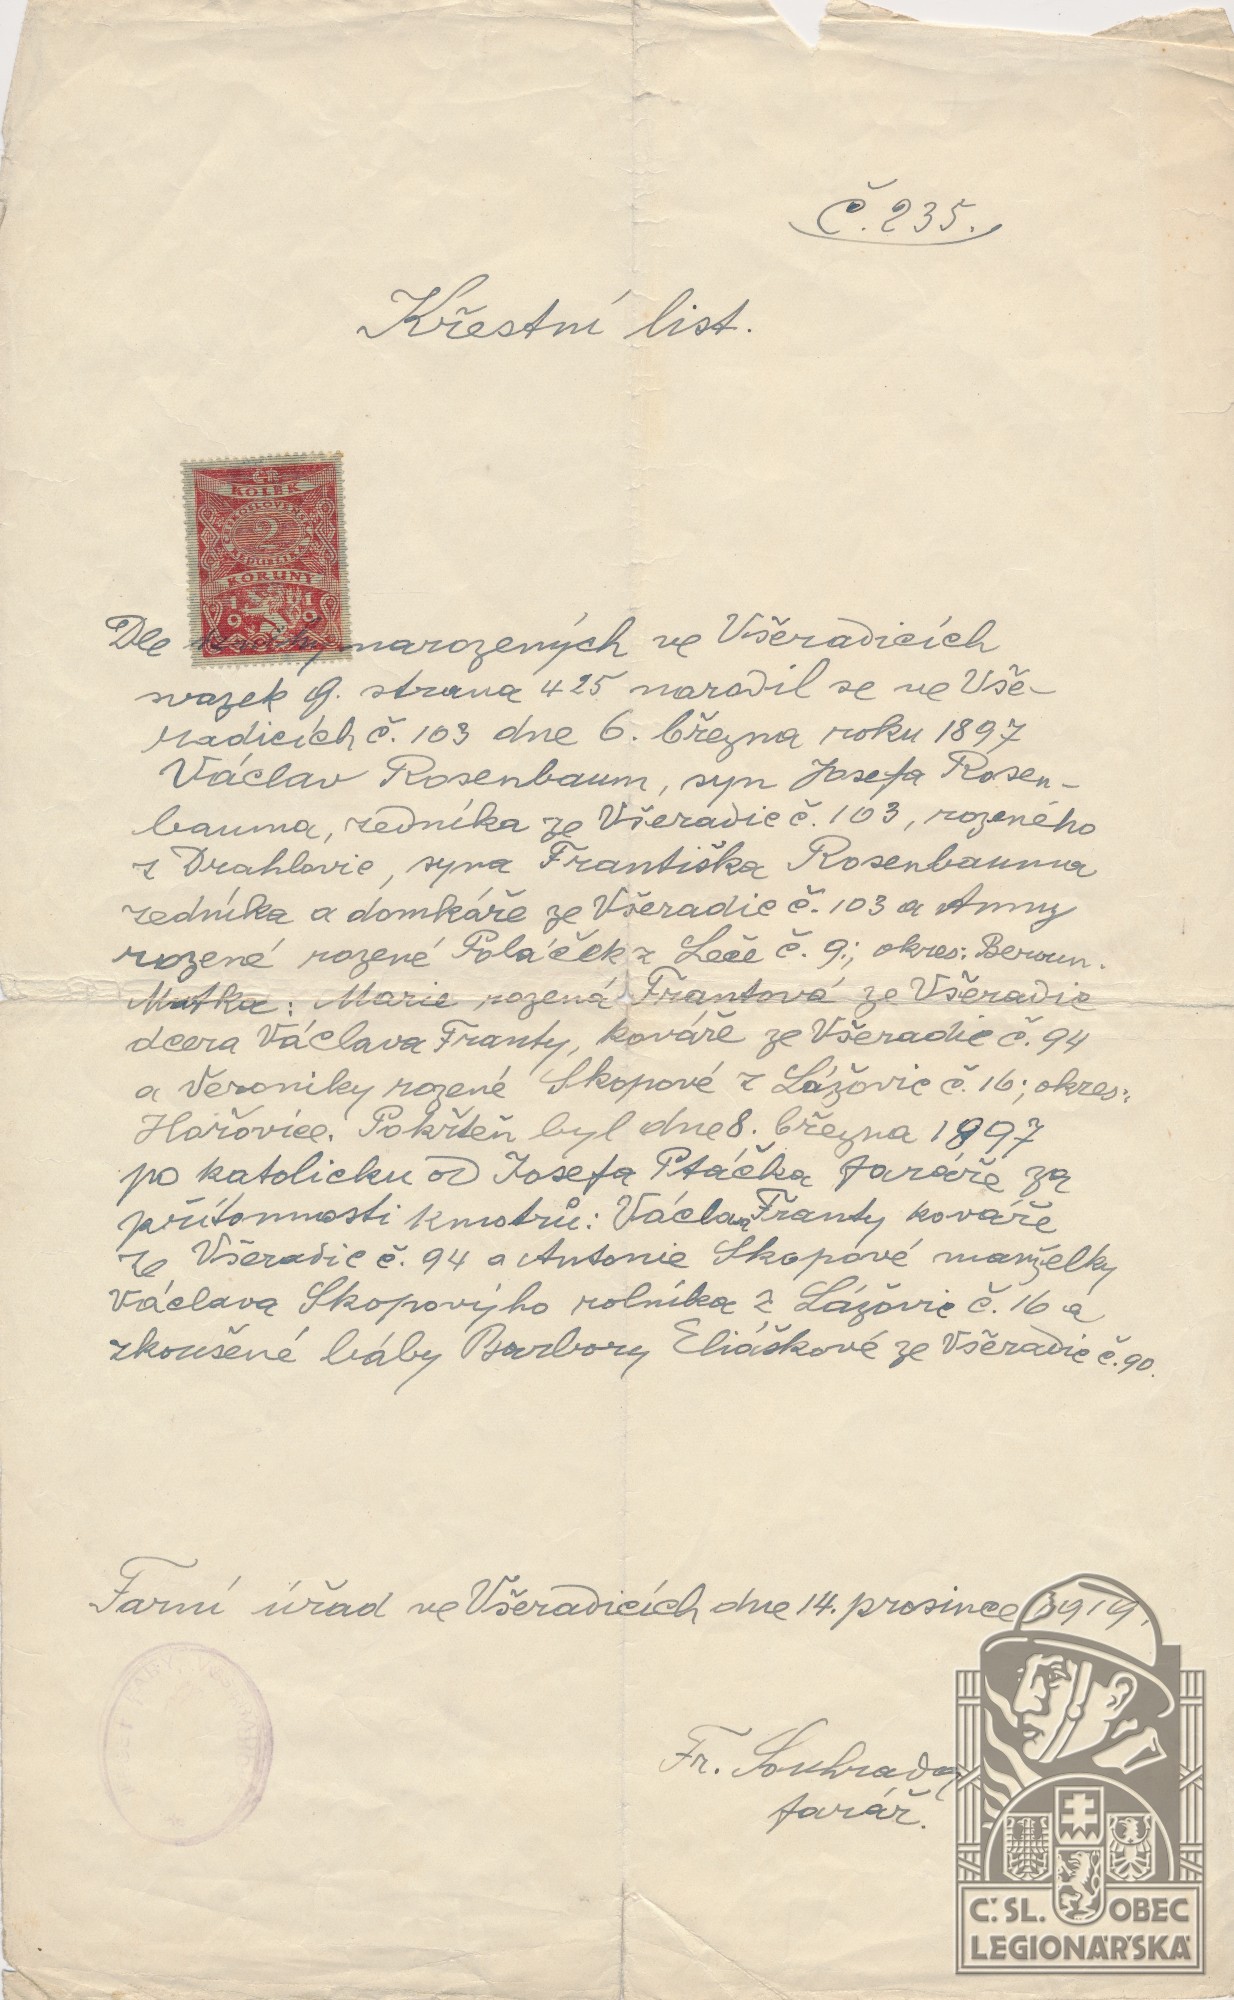 Č. 235.
Křestní list.
ČT.
KOLEK
2
KORUNY
19 19
Dle knihy narozených ve Všeradicích
svazek 9. strana 425 narodil se ve Vše-
radicích č. 103 dne 6. března roku 1897
Václav Rosenbaum, syn Josefa Rosen-
bauma, zedníka ze Všeradic č. 103, rozeného
z Drahlovic, syna Františka Rosenbauma
zedníka a domkáře ze Všeradic č. 103 a Anny
rozené rozené Poláček z Leče č. 9; okres: Beroun.
Matka: Marie rozená Frantová ze Všeradic
dcera Václava Franty, kováře ze Všeradic č. 94
a Veroniky rozené Skopové z Lážovic č. 16; okres:
Hořovice. Pokřtěn byl dne 8. března 1897
po katolicku od Josefa Ptáčka faráře za
přítomnosti kmotrů: Václava Franty kováře
ze Všeradic č. 94 a Antonie Skopové manželky
Václava Skopovýho rolníka z Lážovic č. 16 a
zkoušené báby Barbory Eliáškové ze Všeradic č. 90.
Farní úřad ve Všeradicích dne 14. prosince 1919.
Fr. Souhrada
farář.
Č. SL. OBEC
LEGIONÁŘSKÁ